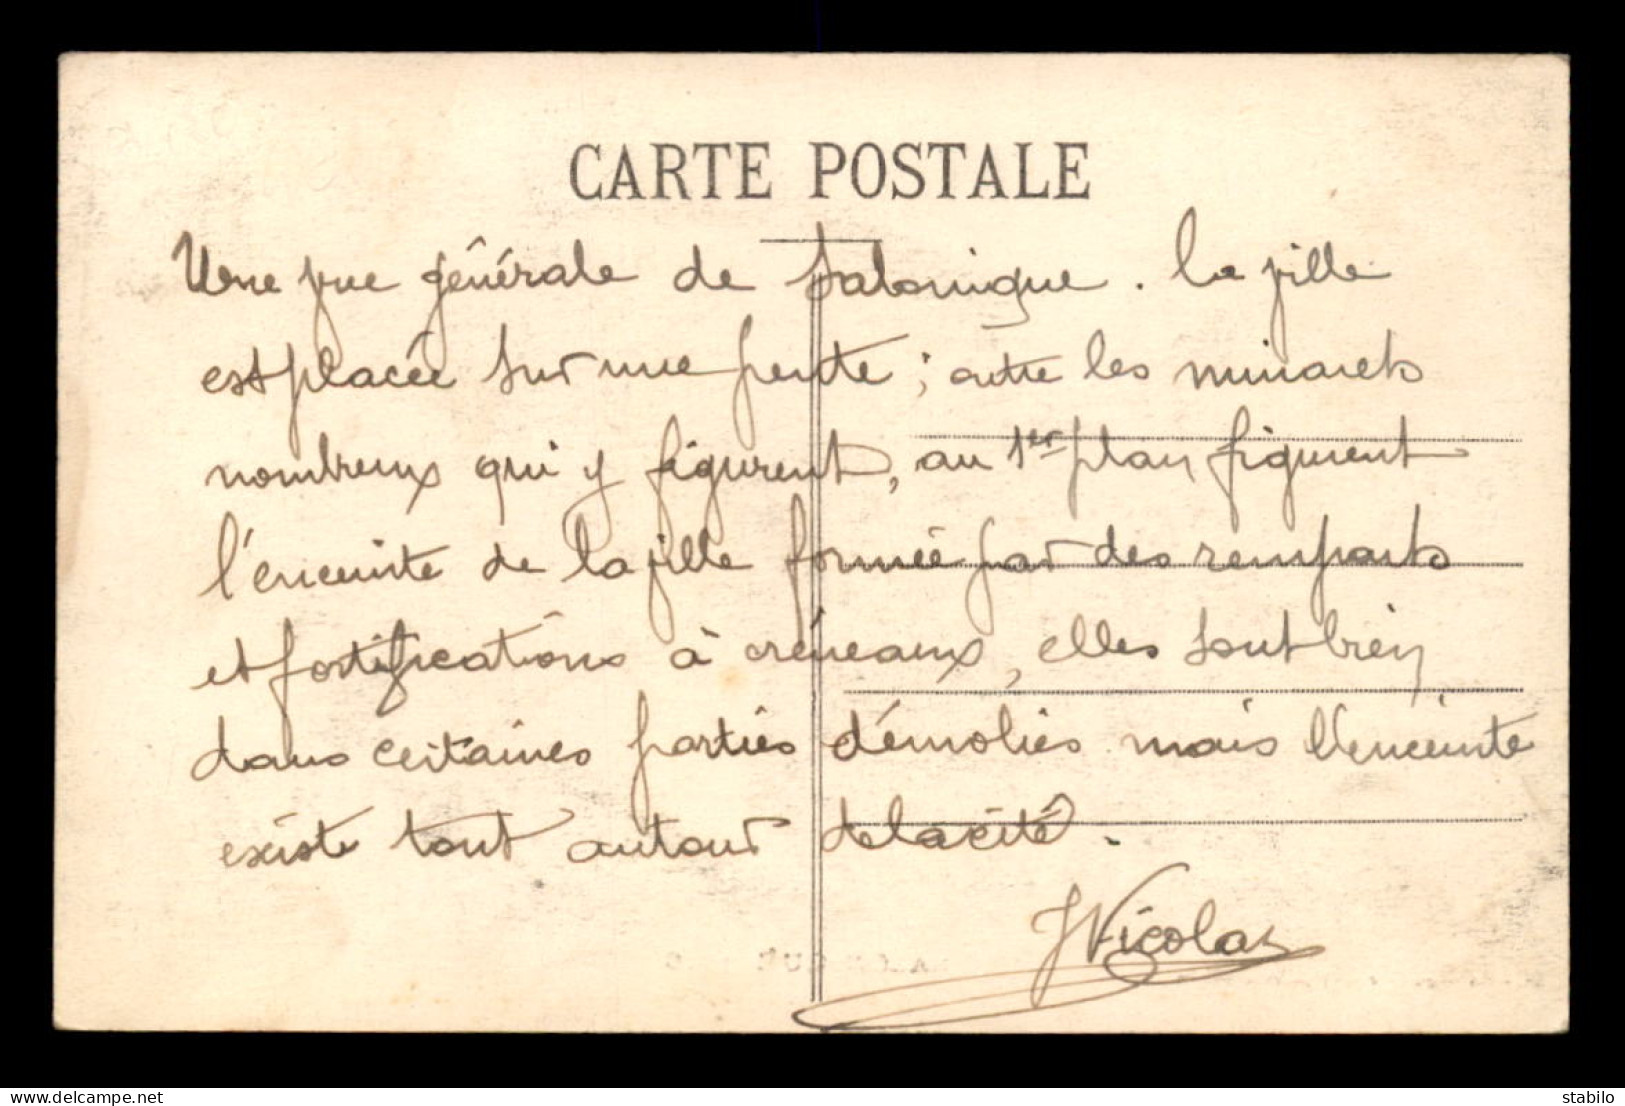 CARTE POSTALE
Une vue générale de Salonique. la ville
est placée sur une pente ; outre les minarets
nombreux qui y figurent, au 1er plan figurent
l'enceinte de la ville formée par des remparts
et fortifications à créneaux, elles sont bien
dans certaines parties démolies mais l'enceinte
existe tout autour de la cité.
JNicolas
delcampe.net
stabilo